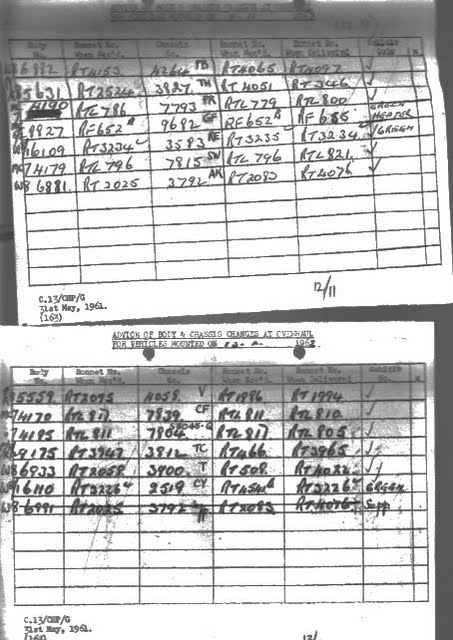 ADVICE OF BODY & CHASSIS CHANGES AT
Body No. Bonnet No. When Rec'd. Chassis No. Bonnet No. When Rec'd. Bonnet No. When Delivered Vehicle
W8 6982 RT4153 4264 PB RT4065 RT4097 ✓
5631 RT2524 3827 TH RT4051 RT346 ✓
4190 RTL786 7793 PR RTL779 RTL800 ✓ GREEN
8827 RF652 9682 GF RF652 RF685 HEPPER
16109 RT3234 3583 RE RT3235 RT3234 ✓ GREEN
4179 RTL796 7815 SW RTL796 RTL821 ✓
W8 6881 RT2025 3792 AK RT2083 RT4076 ✓
C.13/CHP/G
31st May, 1961.
(163)
12/11
ADVICE OF BODY & CHASSIS CHANGES AT OVERHAUL
FOR VEHICLES MOUNTED ON 1962
Body No. Bonnet No. When Rec'd. Chassis No. Bonnet No. Bonnet No. When Delivered Vehicle
5559 RT2095 4058 V RT1986 RT1994 ✓
4170 RTL817 7839 CF RTL811 RTL810 ✓
4195 RTL811 7804 RTL817 RTL805 ✓
9175 RT3947 3812 TC RT466 RT3965 ✓
W8 6933 RT2058 3900 T RT508 RT4022 ✓
16110 RT3226 2519 CY RT4541 RT3226 GREEN
W8 6881 RT2025 3792 RT2083 RT4076 Supp
C.13/CHP/G
31st May, 1961.